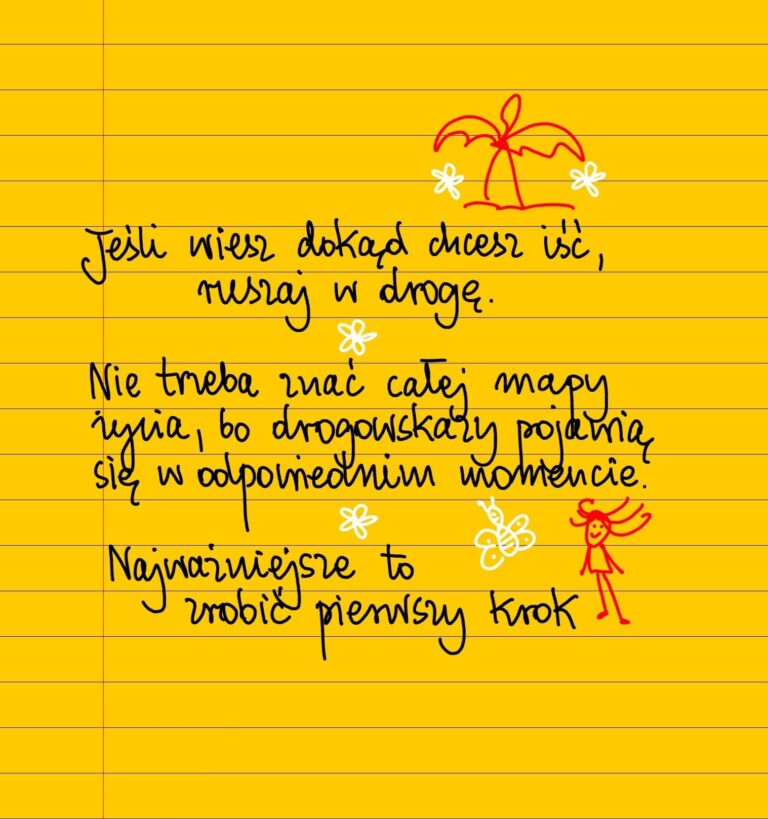 Jeśli wiesz dokąd chcesz iść,
ruszaj w drogę.
Nie trzeba znać całej mapy
życia, bo drogowskazy pojawią
się w odpowiednim momencie.
Najważniejsze to
zrobić pierwszy krok